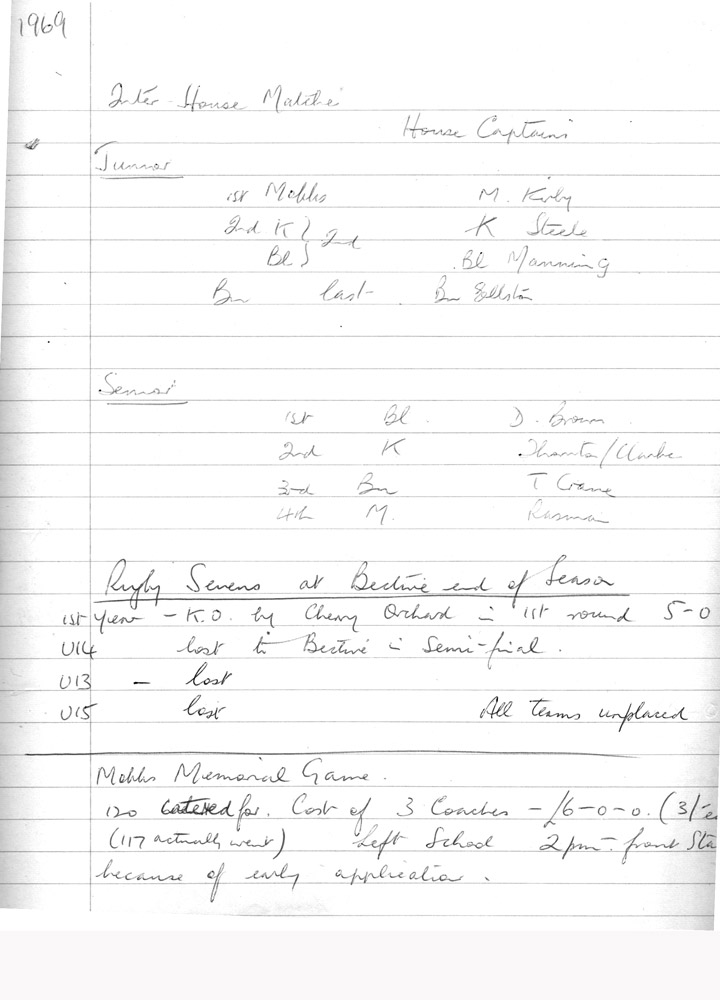 1969
Inter-House Matches
House Captains
Junior
1st Mobbs M. Kirby
2nd K } 2nd K Steele
Bl } Bl Manning
Bn last Bn
Senior
1st Bl. D. Brown
2nd K Thornton/Clarke
3rd Bn T Crane
4th M.
Rugby Sevens at Bective end of Season
1st year - K.O. by Cherry Orchard in 1st round 5-0
U14 lost to Bective in Semi-final.
U13 - lost
U15 lost All teams unplaced
Mobbs Memorial Game.
120 catered for. Cost of 3 Coaches - £6-0-0. (3/-
(117 actually went) Left School 2pm - front Sta
because of early application.